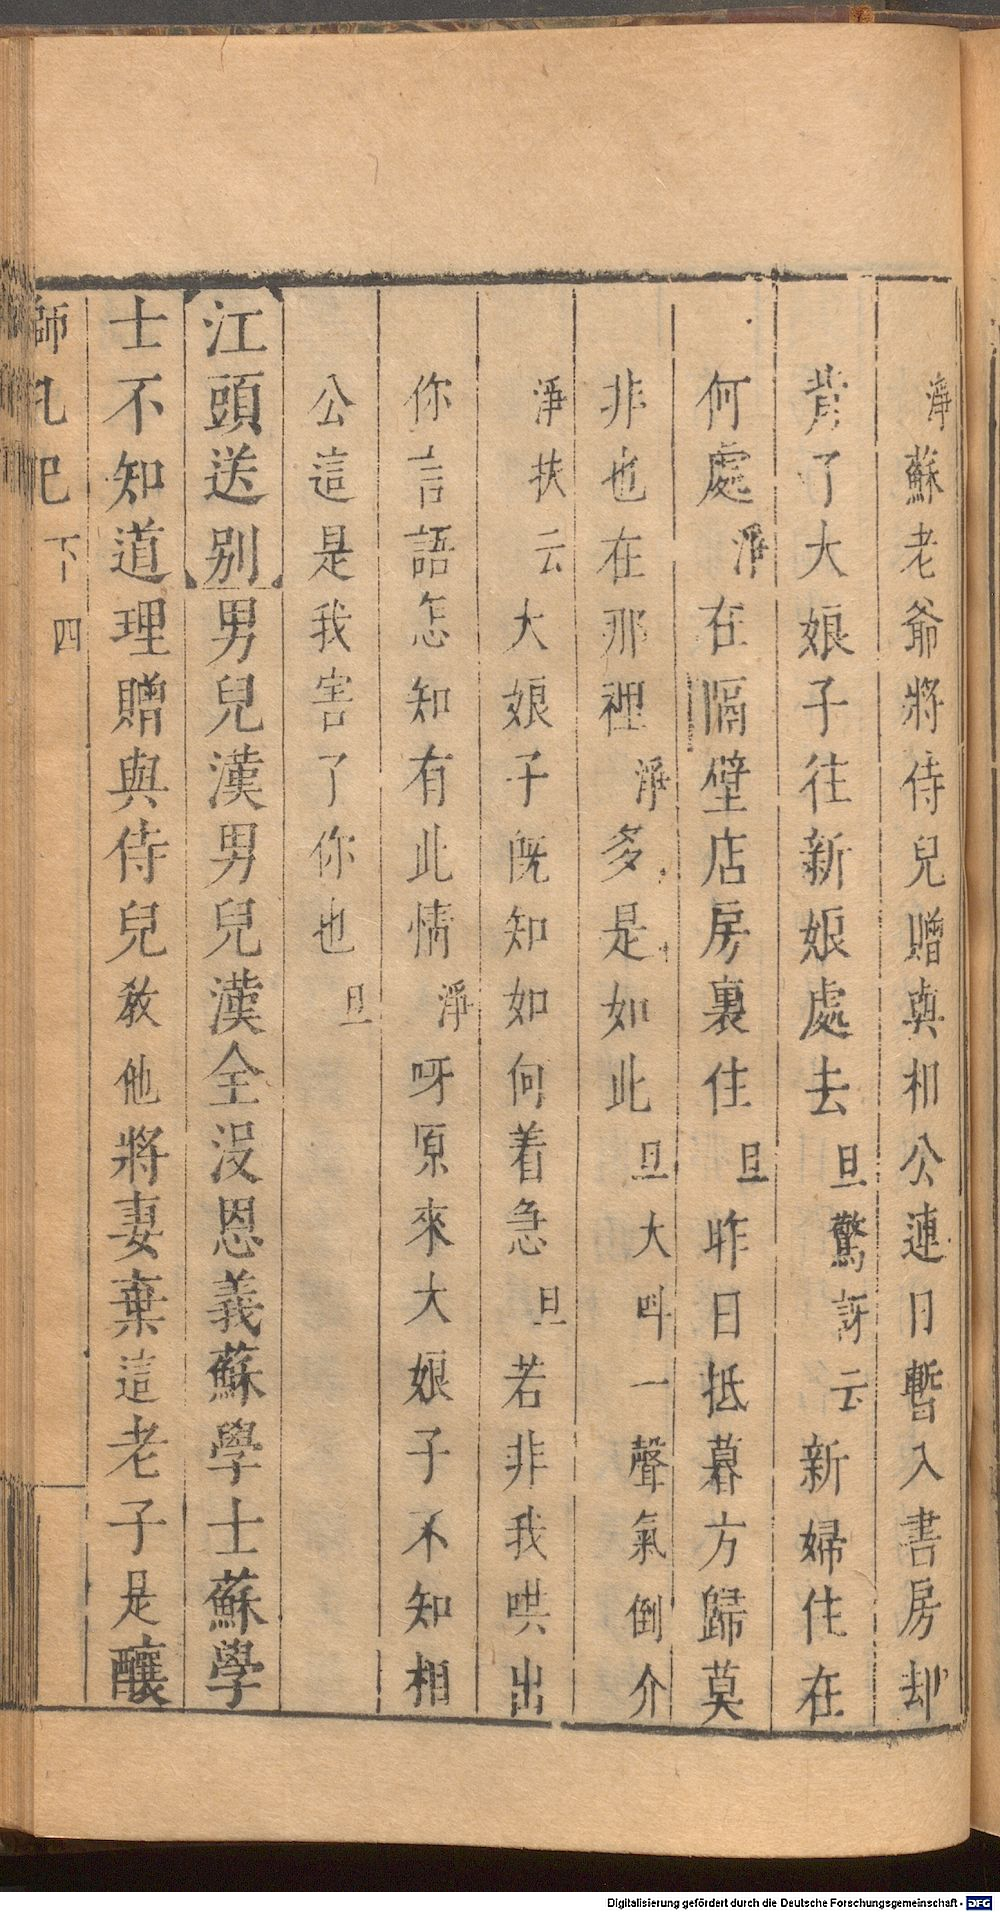 淨蘇老爺將侍兒贈與相公連日暫入書房却
背了大娘子往新娘處去旦驚訝云新婦住在
何處淨在隔壁店房裏住旦昨日抵暮方歸莫
非也在那裡淨多是如此旦大呌一聲氣倒介
淨扶云大娘子旣知如何着急旦若非我哄出
你言語怎知有此情淨呀原來大娘子不知相
公這是我害了你也旦
江頭送别男兒漢男兒漢全沒恩義蘇學士蘇學
士不知道理贈與侍兒敎他將妻棄這老子是釀
師吼記 下 四
Digitalisierung gefördert durch die Deutsche Forschungsgemeinschaft - DFG